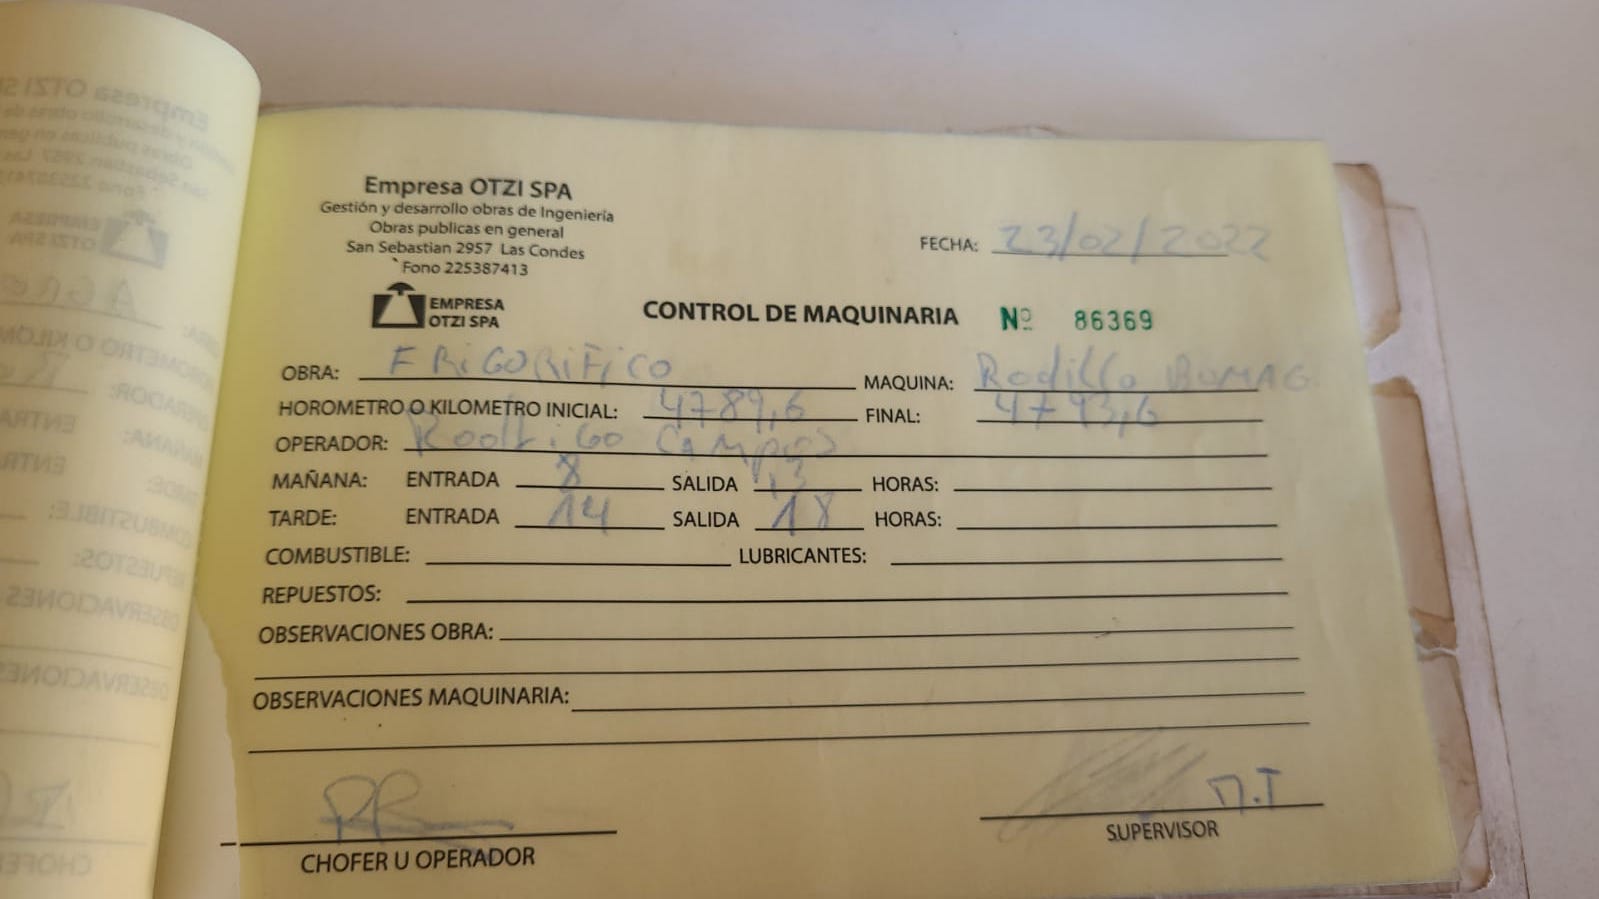 Empresa OTZI SPA
Gestión y desarrollo obras de Ingeniería
Obras publicas en general
San Sebastian 2957 Las Condes
Fono 225387413
EMPRESA
OTZI SPA
FECHA: 23/02/2022
CONTROL DE MAQUINARIA Nº 86369
OBRA: FRiGORiFiCO MAQUINA: Rodillo BOMAG
HOROMETRO O KILOMETRO INICIAL: 4789,6 FINAL: 4793,6
OPERADOR: RodRiGo CAMpos
MAÑANA: ENTRADA 8 SALIDA 13 HORAS:
TARDE: ENTRADA 14 SALIDA 18 HORAS:
COMBUSTIBLE: LUBRICANTES:
REPUESTOS:
OBSERVACIONES OBRA:
OBSERVACIONES MAQUINARIA:
CHOFER U OPERADOR
M.T
SUPERVISOR